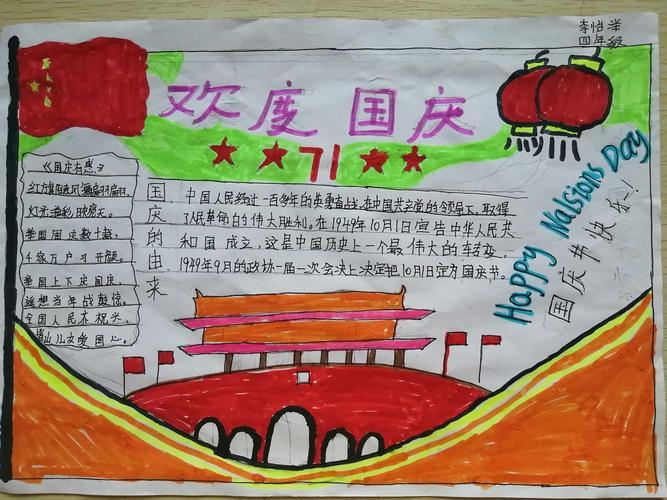 李怡洋
四年级
欢度国庆
71
《国庆有感》
红旗
举国同庆数十载，
千家万户习开颜。
举国上下庆国庆，
遥想当年战鼓惊。
全国人民齐祝兴，
国庆的由来
中国人民经过一百多年的英勇奋战，在中国共产党的领导下，取得
了人民革命的伟大胜利。在1949年10月1日宣告中华人民共
和国成立，这是中国历史上一个最伟大的转变，
1949年9月的政协一届一次会决上决定把10月1日定为国庆节。
Happy Nalsions Day
国庆节快乐！